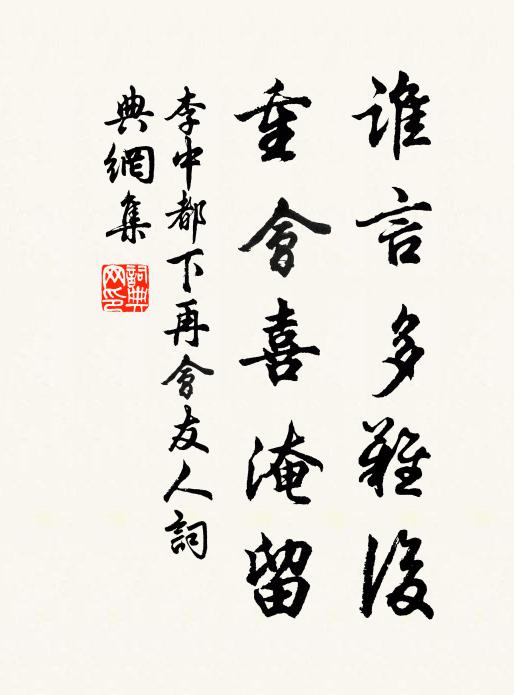 誰言多難後
重會喜淹留
李中都下再會友人詞
典網集
詞典
网印